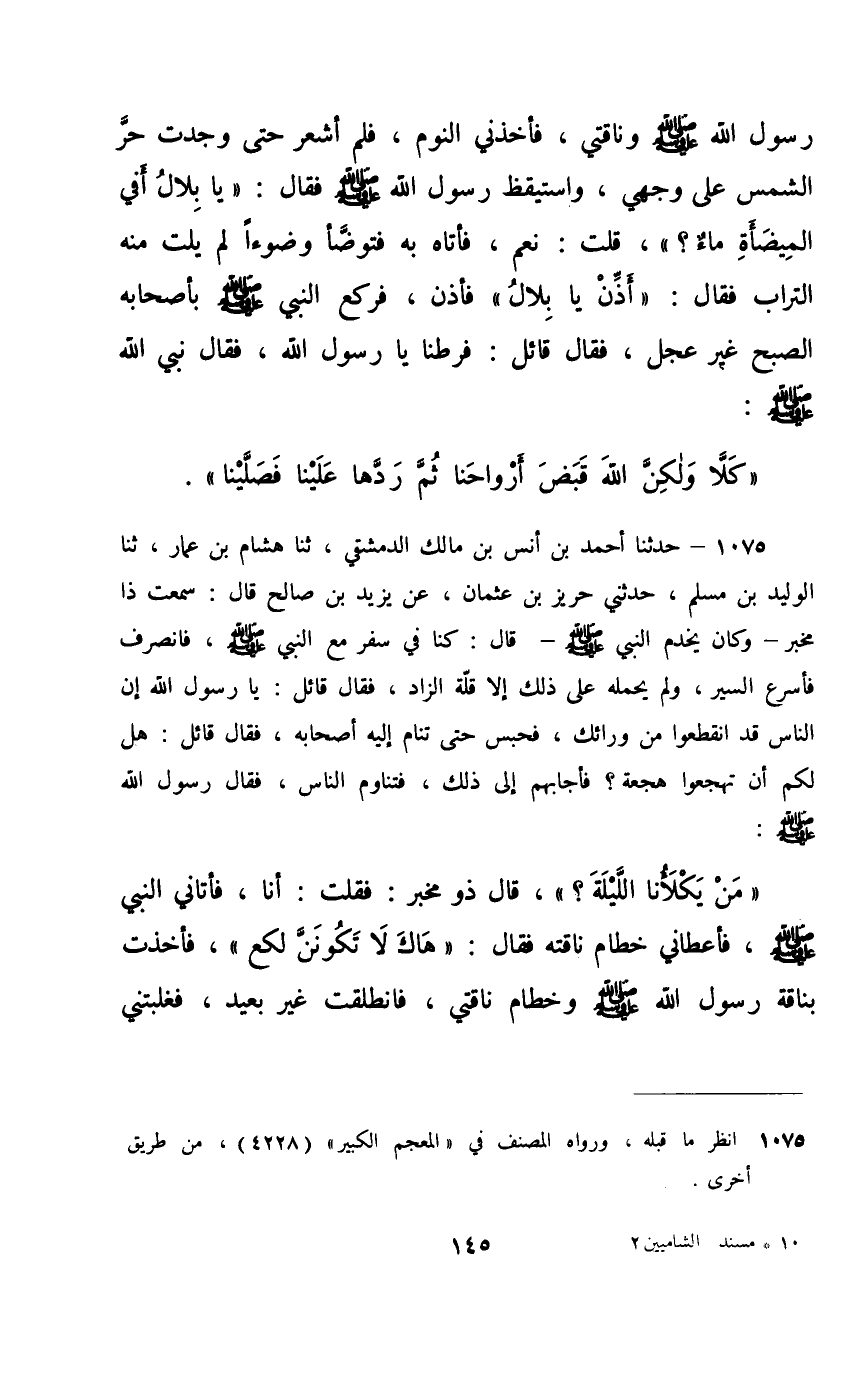 رسول الله ﷺ وناقتي ، فأخذني النوم ، فلم أشعر حتى وجدت حرَّ
الشمس على وجهي ، واستيقظ رسول الله ﷺ فقال : « يا بِلالُ أَفي
المِيضَأَةِ ماءٌ ؟ » ، قلت : نعم ، فأتاه به فتوضَّأ وضوءاً لم يلت منه
التراب فقال : « أَذِّنْ يا بِلالُ » فأذن ، فركع النبي ﷺ بأصحابه
الصبح غير عجل ، فقال قائل : فرطنا يا رسول الله ، فقال نبي الله
ﷺ :
« كَلَّا وَلٰكِنَّ اللهَ قَبَضَ أَرْواحَنا ثُمَّ رَدَّها عَلَيْنا فَصَلَّيْنا » .
١٠٧٥ – حدثنا أحمد بن أنس بن مالك الدمشقي ، ثنا هشام بن عمار ، ثنا
الوليد بن مسلم ، حدثني حريز بن عثمان ، عن يزيد بن صالح قال : سمعت ذا
مخبر – وكان يخدم النبي ﷺ – قال : كنا في سفر مع النبي ﷺ ، فانصرف
فأسرع السير ، ولم يحمله على ذلك إلا قلّة الزاد ، فقال قائل : يا رسول الله إن
الناس قد انقطعوا من ورائك ، فحبس حتى تنام إليه أصحابه ، فقال قائل : هل
لكم أن تهجعوا هجعة ؟ فأجابهم إلى ذلك ، فتناوم الناس ، فقال رسول الله
ﷺ :
« مَنْ يَكْلَأُنا اللَّيْلَةَ ؟ » ، قال ذو مخبر : فقلت : أنا ، فأتاني النبي
ﷺ ، فأعطاني خطام ناقته فقال : « هَاكَ لَا تَكُونَنَّ لكع » ، فأخذت
بناقة رسول الله ﷺ وخطام ناقتي ، فانطلقت غير بعيد ، فغلبتني
١٠٧٥ انظر ما قبله ، ورواه المصنف في « المعجم الكبير » (٤٢٢٨) ، من طريق
أخرى .
١٠ * مسند الشاميين ٢
١٤٥